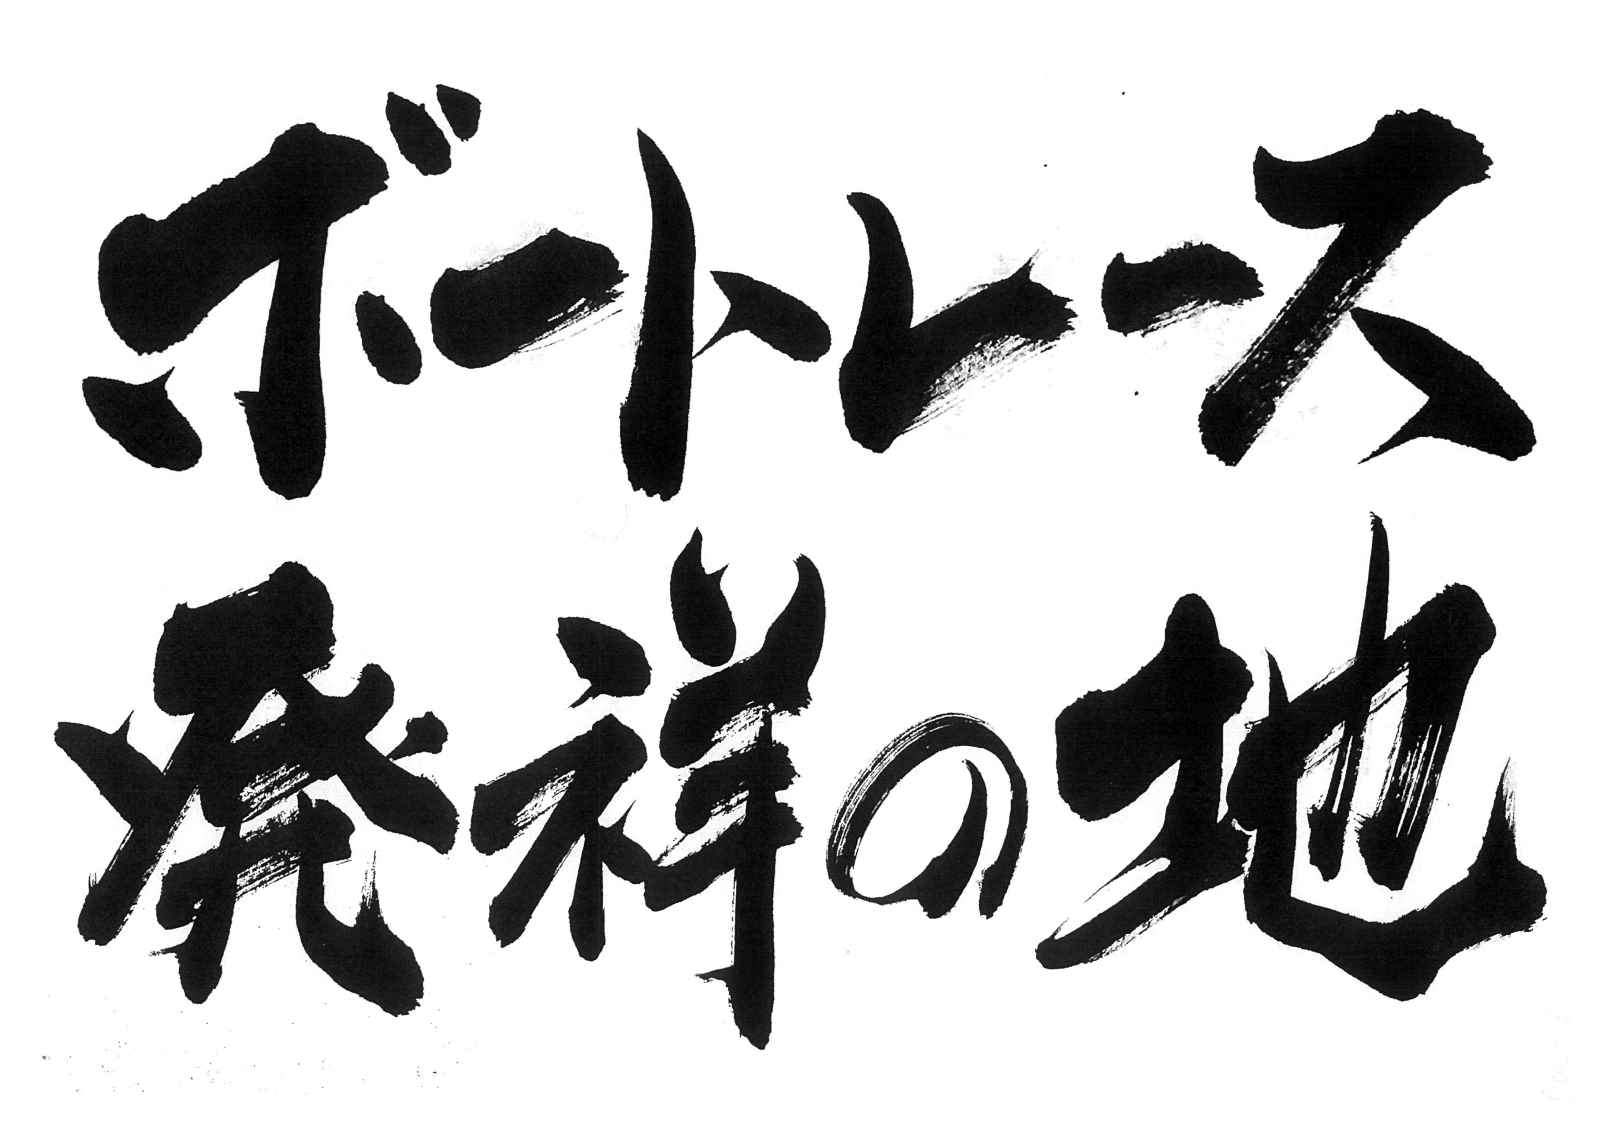 ボートレース
発祥の地